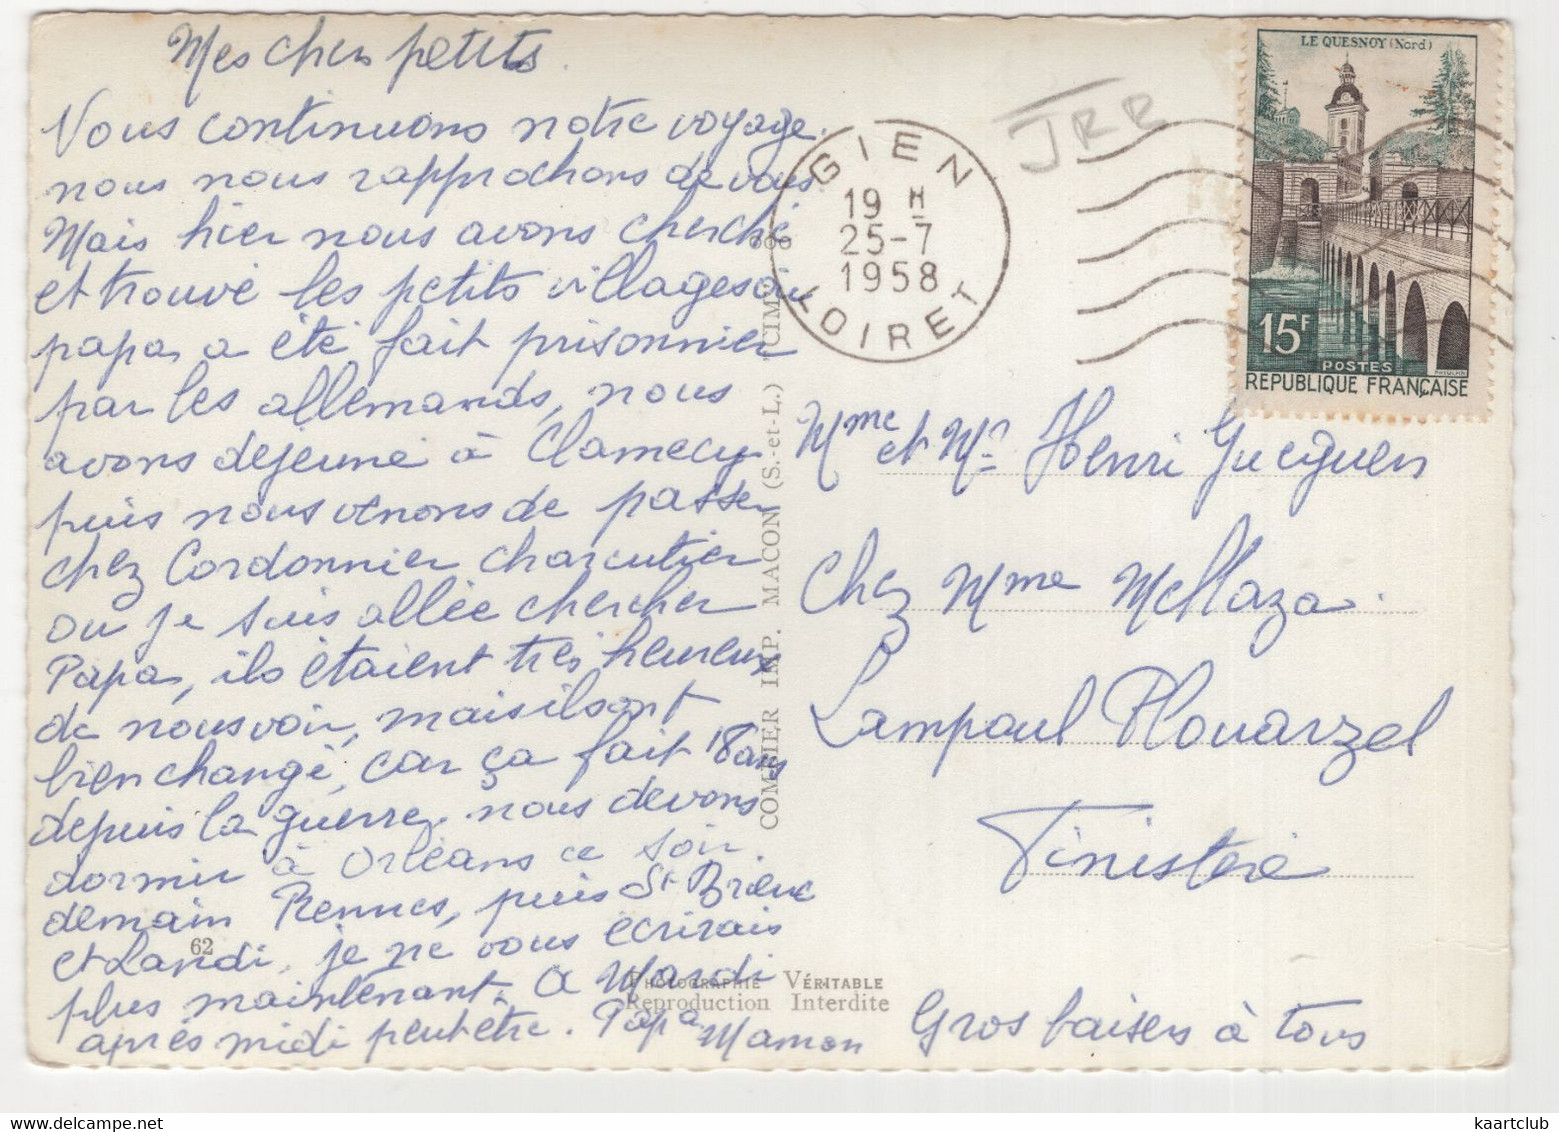 Mes chers petits.
Nous continuons notre voyage.
nous nous rapprochons de vous.
Mais hier nous avons cherché
et trouvé les petits villages où
papa a été fait prisonnier
par les allemands, nous
avons déjeuné à Clamecy
puis nous venons de passer
chez Cordonnier charcutier
ou je suis allée chercher
Papa, ils étaient très heureux
de nous voir, mais ils ont
bien changé, car ça fait 18 ans
depuis la guerre. nous devons
dormir à Orléans ce soir.
demain Rennes, puis St Brieuc
et Landi, je ne vous écrirais
plus maintenant. A Mardi
après midi peut être. Papa Maman
62
COMBIER IMP. MACON (S.-et-L.) "CIM"
PHOTOGRAPHIE VÉRITABLE
Reproduction Interdite
JRR
GIEN
19 H
25-7
1958
LOIRET
LE QUESNOY (Nord)
15F
POSTES
REPUBLIQUE FRANÇAISE
Mme et Mr Henri Gueguen
Chez Mme Mellaza.
Lampaul Plouarzel
Finistère
Gros baisers à tous
kaartclub